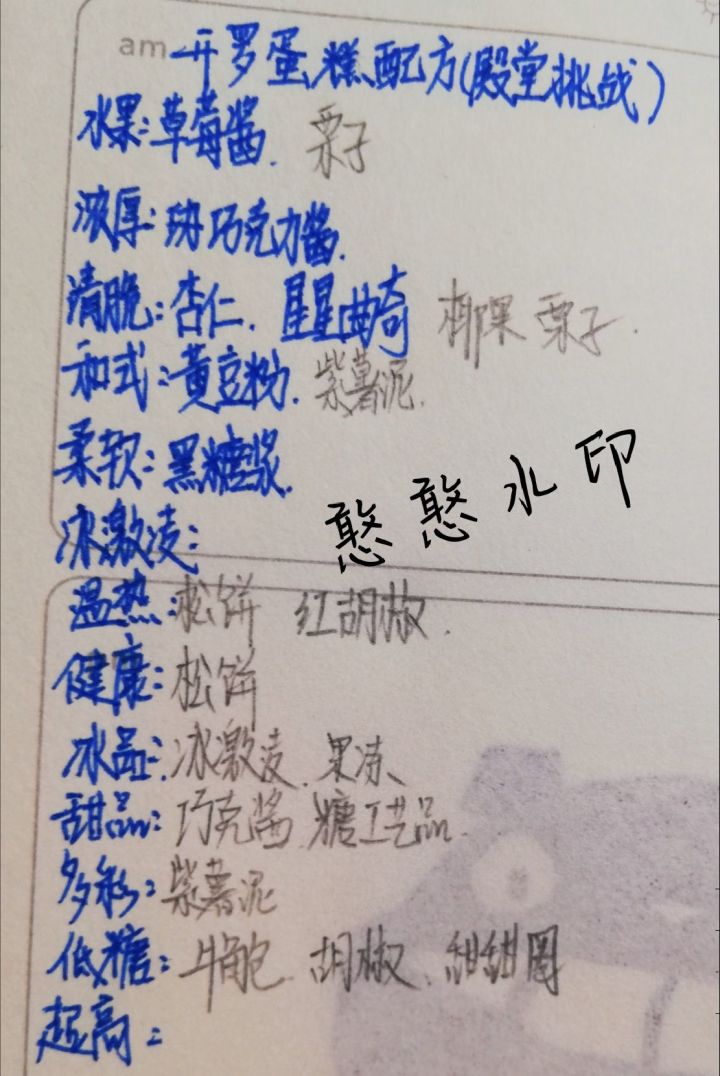 am 开罗蛋糕配方(殿堂挑战)
水果:草莓酱. 栗子
浓厚: 巧克力酱.
清脆:杏仁. 星星曲奇 椰果 栗子.
和式:黄豆粉. 紫薯泥.
柔软:黑糖浆.
憨憨水印
冰激凌:
温热:松饼 红胡椒.
健康:松饼
冰品:冰激凌 果冻、
甜品:巧克酱 糖工艺品.
多彩:紫薯泥
低糖:牛角包. 胡椒. 甜甜圈
超高: